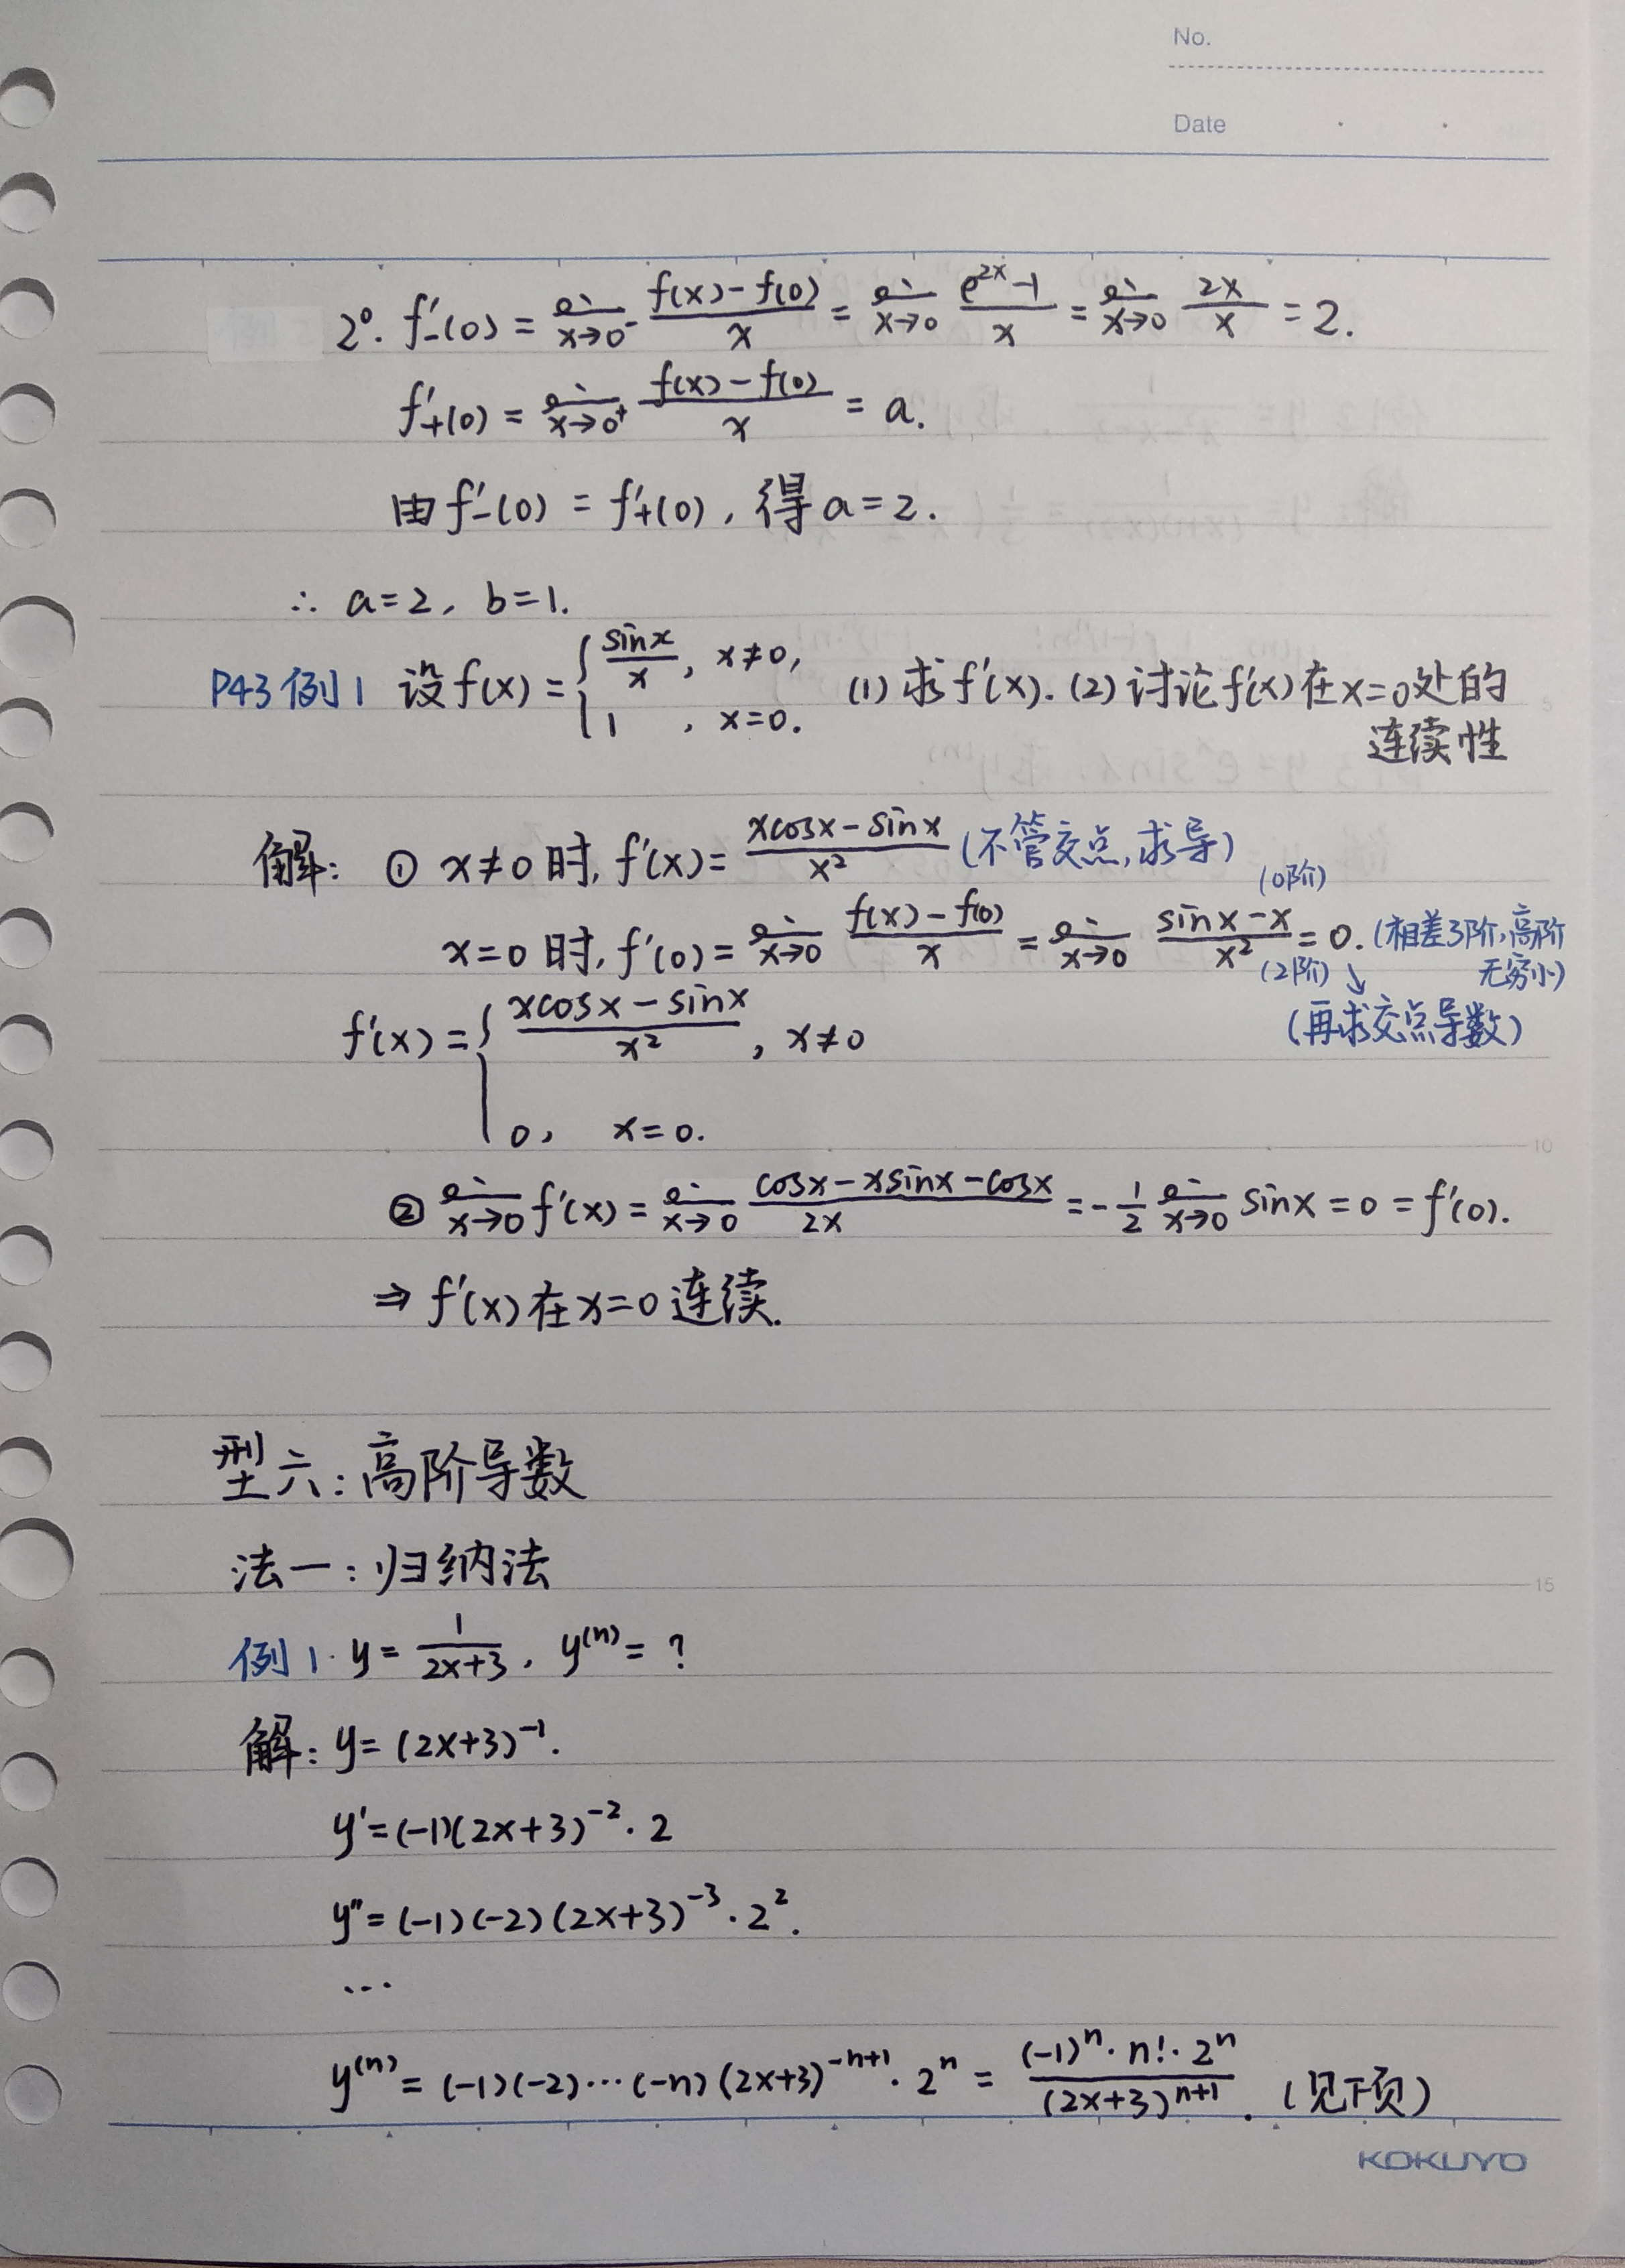 No.
Date
2°. f'₋(0) = lim_{x→0⁻} (f(x)-f(0))/x = lim_{x→0} (e^{2x}-1)/x = lim_{x→0} 2x/x = 2.
f'₊(0) = lim_{x→0⁺} (f(x)-f(0))/x = a.
由f'₋(0) = f'₊(0), 得a=2.
∴ a=2, b=1.
P43例1 设f(x)= { sinx/x, x≠0, 1, x=0. (1)求f'(x). (2)讨论f'(x)在x=0处的
连续性
解: ① x≠0时, f'(x)= (xcosx-sinx)/x² (不管交点,求导)
(0阶)
x=0时, f'(0)= lim_{x→0} (f(x)-f(0))/x = lim_{x→0} (sinx-x)/x² = 0. (相差3阶,高阶
(2阶) ↘ 无穷小)
(再求交点导数)
f'(x)= { (xcosx-sinx)/x², x≠0
0, x=0.
② lim_{x→0} f'(x)= lim_{x→0} (cosx-xsinx-cosx)/2x = -1/2 lim_{x→0} sinx = 0 = f'(0).
⇒ f'(x)在x=0连续.
10
型六:高阶导数
法一:归纳法
15
例1. y= 1/(2x+3), y^{(n)}= ?
解: y= (2x+3)^{-1}.
y'=(-1)(2x+3)^{-2}·2
y''=(-1)(-2)(2x+3)^{-3}·2².
...
y^{(n)}= (-1)(-2)···(-n)(2x+3)^{-n+1}·2^n = ((-1)^n·n!·2^n)/(2x+3)^{n+1}. (见下页)
KOKUYO